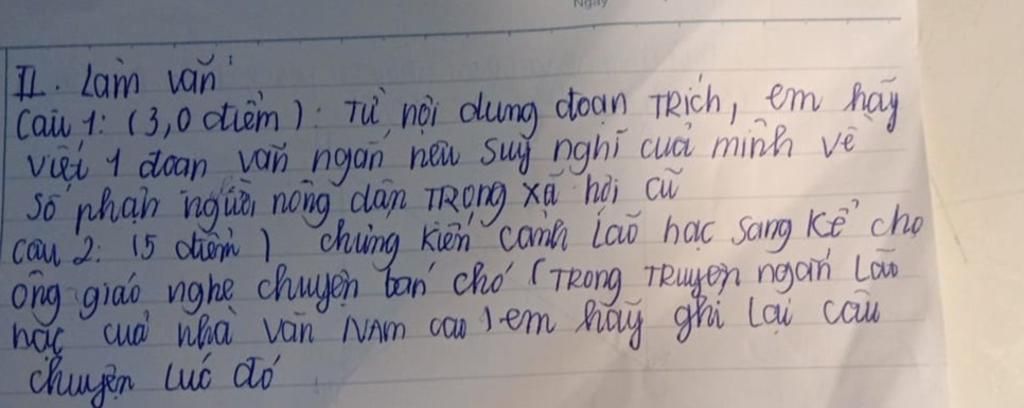 Ngày
II. Làm văn
Câu 1: (3,0 điểm): Từ nội dung đoạn TRích, em hãy
viết 1 đoạn văn ngắn nêu suy nghĩ của mình về
số phận người nông dân TRONG xã hội cũ
câu 2: (5 điểm) chứng kiến cảnh lão hạc sang kể cho
ông giáo nghe chuyện bán chó (TRONG TRuyện ngắn Lão
hạc của nhà văn NAM cao) em hãy ghi lại câu
chuyện lúc đó